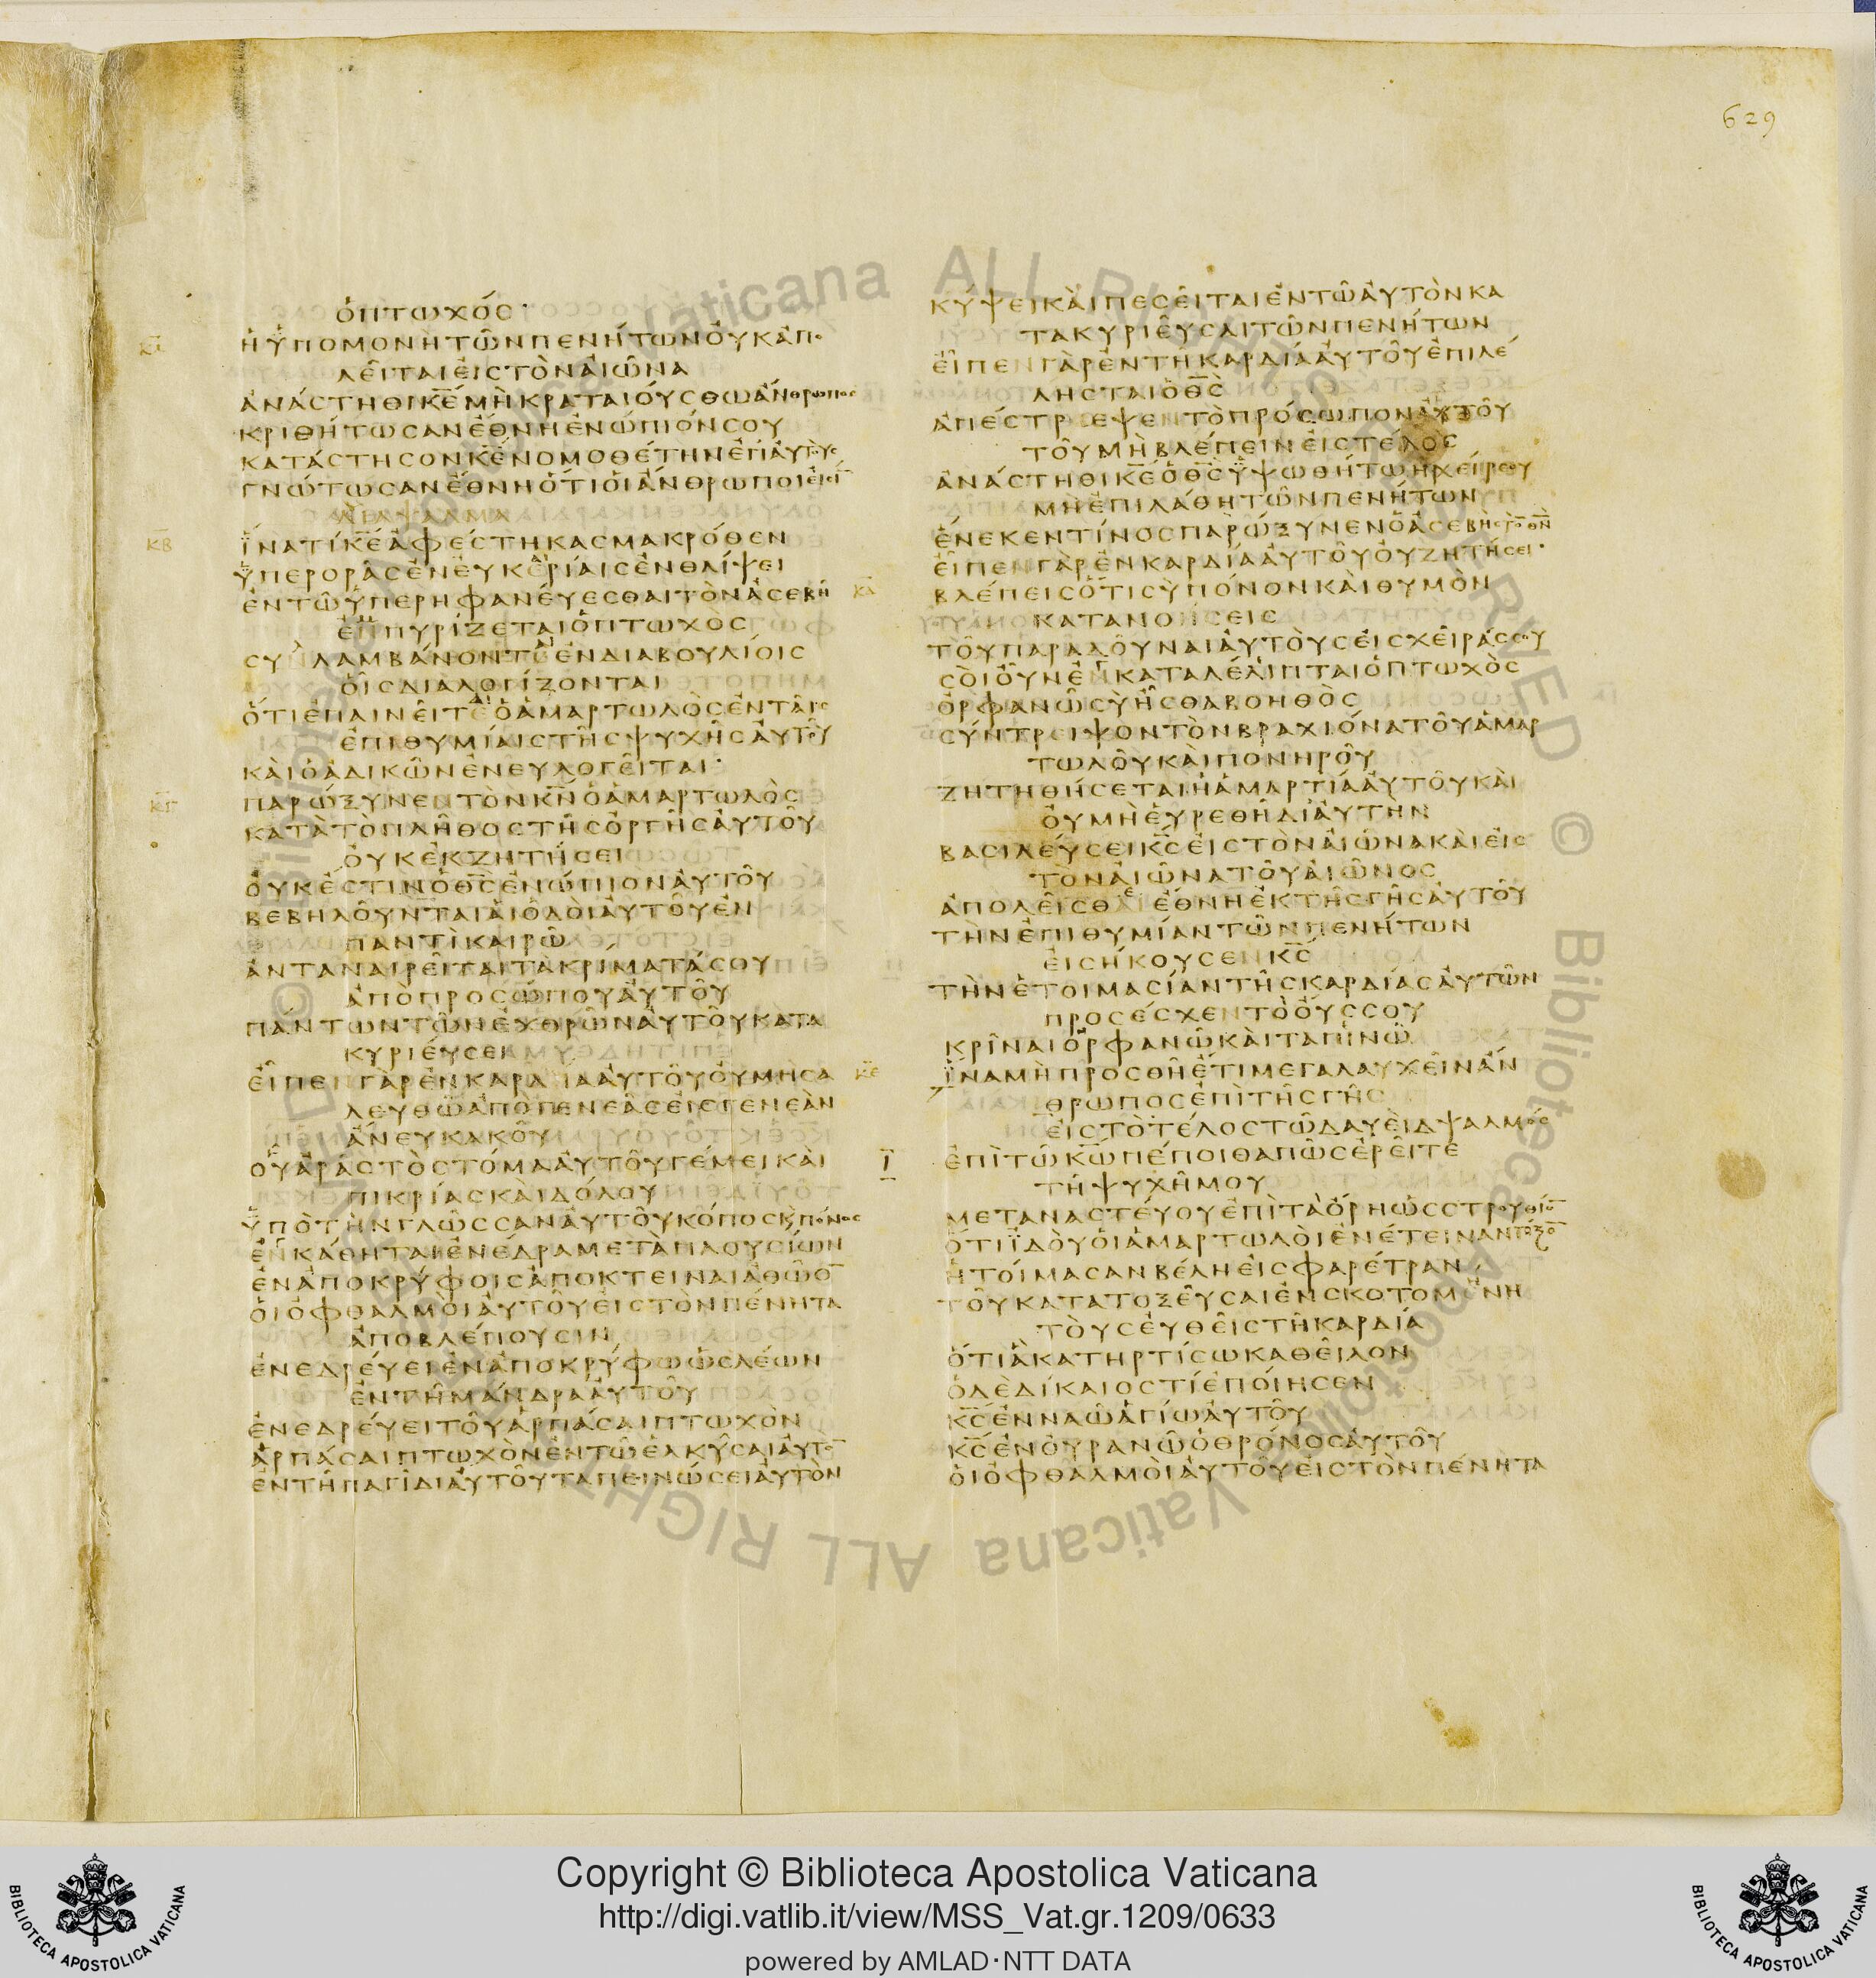 629
ὁπτωχός·
ἡὑπομονὴτῶνπενήτωνὀυκἀπο
λεῖταιἐιςτὸνἀιῶνα
ἀνάστηθικ̅ε̅μὴκραταιόυσθωἄνθρωπος
κριθήτωσανἔθνηἐνώπιόνσου
κατάστησονκ̅ε̅νομοθέτηνἐπἀυτούς
γνώτωσανἔθνηὅτιὁιἄνθρωποιἐισι̅
διαψαλμα
κ̅β̅
ἵνατίκ̅ε̅ἀφέστηκασμακρόθεν
ὑπερορᾷςἐνἐυκαιρίαιςἐνθλίψει
ἐντῶὑπερηφανέυεσθαιτὸνἀσεβῆ
ἐμπυρίζεταιὁπτωχος
συλλαμβάνονταιἐνδιαβουλίοις
ὁῖςδιαλογίζονται
ὅτιἐπαινεῖταιὁἁμαρτωλὸςἐνταῖς
ἐπιθυμίαιςτῆςψυχῆςἀυτοῦ
κὰιὁἀδικῶνἐνευλογεῖται·
κ̅γ̅
παρώξυνεντὸνκ̅ν̅ὁἁμαρτωλὸς
κατὰτὸπλῆθοςτῆςὀργῆςἀυτοῦ
ὀυκἐκζητήσει
ὀυκἔστινὁθ̅ς̅ἐνώπιονἀυτοῦ
βεβηλοῦνταιἁιὁδὸιἀυτοῦἐν
παντὶκαιρῶ
ἀνταναιρεῖταιτὰκρίματάσου
ἀπὸπροσώπουἀυτοῦ
πάντωντῶνἐχθρῶνἀυτοῦκατα
κυριέυσει
εἶπενγὰρἐνκαρδίαἀυτοῦὀυμὴσα
λευθῶἀπὸγενεᾶςἐιςγενεὰν
ἄνευκακοῦ
οὗἀρᾶςτὸστόμαἀυτοῦγέμεικὰι
πικρίαςκὰιδόλου
ὑπὸτὴνγλῶσσανἀυτοῦκόποςκ̀πόνος
ἐνκάθηταιἐνέδραμετὰπλουσίων
ἐνἀποκρύφοιςἀποκτεῖναιἀθῶο̅
ὁιὀφθαλμὸιἀυτοῦἐιςτὸνπένητα
ἀποβλέπουσιν
ἐνεδρέυειἐνἀποκρύφωὡςλέων
ἐντῆμάνδραἀυτοῦ
ἐνεδρέυειτοῦἁρπάσαιπτωχὸν
ἁρπάσαιπτωχὸνἐντῶἑλκῦσαιἀυτο̅
ἐντῆπαγίδιἀυτοῦταπεινώσειἀυτὸν
κύψεικὰιπεσεῖταιἐντῶἀυτὸνκα
τακυριεῦσαιτῶνπενήτων
εἶπενγὰρἐντῆκαρδίαἀυτοῦἐπιλέ
λησταιὁθ̅ς̅
ἀπέστρεψεντὸπρόσωπονἀυτοῦ
τοῦμὴβλέπεινἐιςτέλος
ἀνάστηθικ̅ε̅ὁθ̅ς̅ὑψωθήτωἡχείρσου
μὴἐπιλάθητῶνπενήτων
ἕνεκεντίνοςπαρώξυνενὁἀσεβὴςτὸνθ̅ν̅
εἶπενγὰρἐνκαρδίαἀυτοῦὀυζητήσει·
κ̅δ̅
βλέπειςὅτισὺπόνονκὰιθυμὸν
κατανοήσεις
τοῦπαραδοῦναιἀυτὸυςἐιςχεῖράςσου
σὸιοὖνἐνκαταλέλιπταιὁπτωχὸς
ὀρφανῶσὺἦσθαβοηθὸς
σύντρειψοντὸνβραχιόνατοῦἁμαρ
τωλοῦκὰιπονηροῦ
ζητηθήσεταιἡἁμαρτίαἀυτοῦκὰι
ὀυμὴἑυρεθῆδιἀυτὴν
βασιλέυσεικ̅ς̅ἐιςτὸνἀιῶνακὰιἐις
τὸνἀιῶνατοῦἀιῶνος
ἀπολεῖσθεἔθνηἐκτῆςγῆςἀυτοῦ
τὴνἐπιθυμίαντῶνπενήτων
ἐισήκουσενκ̅ς̅
τὴνἑτοιμασίαντῆςκαρδίαςἀυτῶν
προσέσχεντὸοὖςσου
κρῖναιὀρφανῶκὰιταπινῶ
κ̅ε̅
ἵναμὴπροσθῆἔτιμεγαλαυχεῖνἄν
θρωποςἐπὶτῆςγῆς
ἐιςτὸτέλοςτῶδαυὲιδψαλμός
ι̅
ἐπὶτῶκ̅ω̅πέποιθαπῶςἐρεῖτε
τῆψυχῆμου
μεταναστέυουἐπὶτὰὄρηὡςστρουθίο̅
ὅτιἰδὸυὁιἁμαρτωλὸιἐνέτεινατόξο̅
ἡτοίμασανβέληἐιςφαρέτραν
τοῦκατατοξεῦσαιἐνσκοτομήνη
τὸυςἐυθεῖςτῆκαρδία
ὅτιἃκατηρτίσωκαθεῖλον
ὁδὲδίκαιοςτίἐποίησεν
κ̅ς̅ἐνναῶἁγίωἀυτοῦ
κ̅ς̅ἐνὀυρανῶὁθρόνοςἀυτοῦ
ὁιὀφθαλμὸιἀυτοῦἐιςτὸνπένητα
Copyright © Biblioteca Apostolica Vaticana
http://digi.vatlib.it/view/MSS_Vat.gr.1209/0633
powered by AMLAD·NTT DATA
BIBLIOTECA APOSTOLICA VATICANA
BIBLIOTECA APOSTOLICA VATICANA